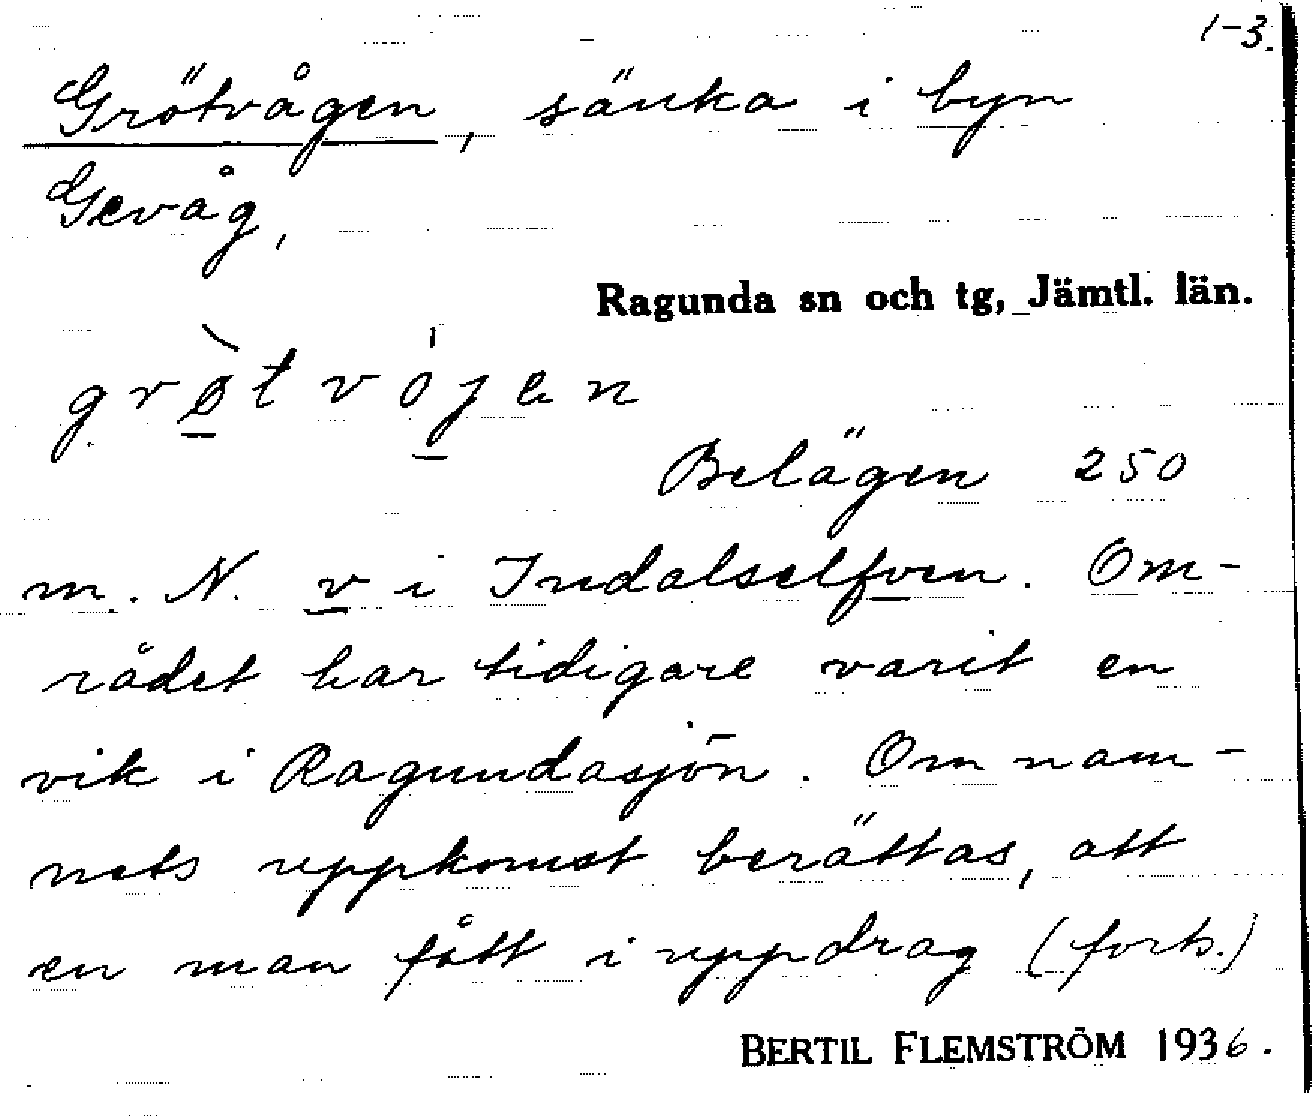 1-3.
Grötvågen, sänka i byn
Gevåg,
Ragunda sn och tg, Jämtl. län.
grø̀tvójen
Belägen 250
m. N. v i Indalselfven. Om-
rådet har tidigare varit en
vik i Ragundasjön. Om nam-
nets uppkomst berättas, att
en man fått i uppdrag (forts.)
BERTIL FLEMSTRÖM 1936.